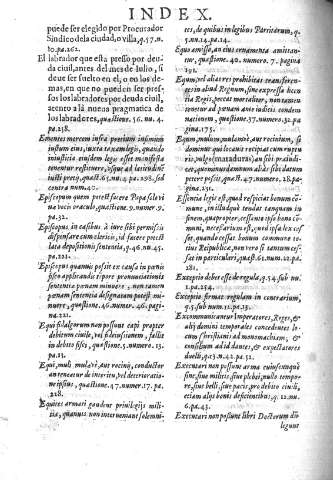 INDEX.
puede ser elegido por Procurador
Sindico de la ciudad, o villa, q.17.n.
10.pa.262.
El labrador que esta preso por deu
da ciuil, antes del mes de Iulio, si
deue ser suelto en el, o en los de-
mas, en que no pueden ser pre-
sos los labradores por deuda ciuil,
acento a la nueua pragmatica de
los labradores, quæstione, 56. nu. 4.
pa.238.
Ementes mercem infra pretium
iustum eius, iuxta texum legis, quando
iniusticia eiusdem legis est manifesta
tenentur restituere, vsque ad latitudinē
iusti precij, quæst.65.nu.4.pa.298.sed
contra num.40.
Episcopum quem potest facere Papa sola vi
uæ vocis oraculo, quæstione.9.numer.9.
pa.32.
Episcopus in casibus à iure sibi permissis
dispensare cum clericis, id facere potest
lata depositionis sententia, q.46.nu.45.
pa.221.
Episcopus quamuis possit ex causa in pœnis
suo applicandis parcere pronunciationis
sententiæ pœnam mittere, non tamen
pœnam sententia designatam potest mi-
nuere, quæstione.46.numero.46.pagi-
na.221.
Equi filalgorum non possunt capi propter
debitum ciuile, vel fœneratitium, fallit
in debito fisci, quæstione.5.numero.13.
pa.13.
Equi, muli, mulari, aut rocini, conductor
an teneatur de interitu, vel deterioratio
ne ipsius, quæstione.47.numer.17.pa.
228.
Equites armati gaudent priuilegijs mili
tia, quamuis non inueniantur solemni-
tes, de quibus in legibus Partitarum, q.
5.nu.14.pa.14.
Equo amisso, an eius ornamenta amittan-
tur, quæstione. 40. numero. 7. pagina
191.
Equum vel alias res prohibitas transferen-
tes extra Regnum, sine expressa licen
tia Regis, potest moderator, siue minu-
i horum pœnam ante iudicij condem
nationem, quæstione.37.numero.32.pa
gina.175.
Equum, mulum, mulam, aut rocinium, si
dominus qui locauit recipiat cum ruptu
ris, vulgo (mataduras) an sibi præiudi-
cet, quemadmodum in alijs debitoribus
alijs pater quæst.47.numero.28.pa-
gina.231.
Essentia legis est, quod respiciat bonum cō
mune, in illudque tendat tanquam in
finem, quapropter, cessante ipso bono cō
muni, necesse est quod, vel ipsa lex cesse
tur, quando cessat bonum commune to
tius Reipublicæ, non vero si tantum ces-
set in particulari, quæst.61.num.22.pa
281.
Exceptio debet esse de regula, q.54.sub nu.
2.pa.234.
Exceptio firmat regulam in contrarium,
q.5.sub num.11.pa.13.
Excommunicantur Imperatores, Reges, &
alij domini temporales concedentes lo-
cum Christianis ad monomachiam, &
consilium ad id dantes & expectatores
duelli, q.13.n.42.pa.51.
Executari non possunt arma cuiuscunque
sint, siue militis, siue plebei, nullo tempo-
re, siue belli, siue pacis, pro debito ciuili,
etiam alijs bonis deficientibus, q.12.nu
6.pa.43.
Executari non possunt libri Doctorum dū
legunt